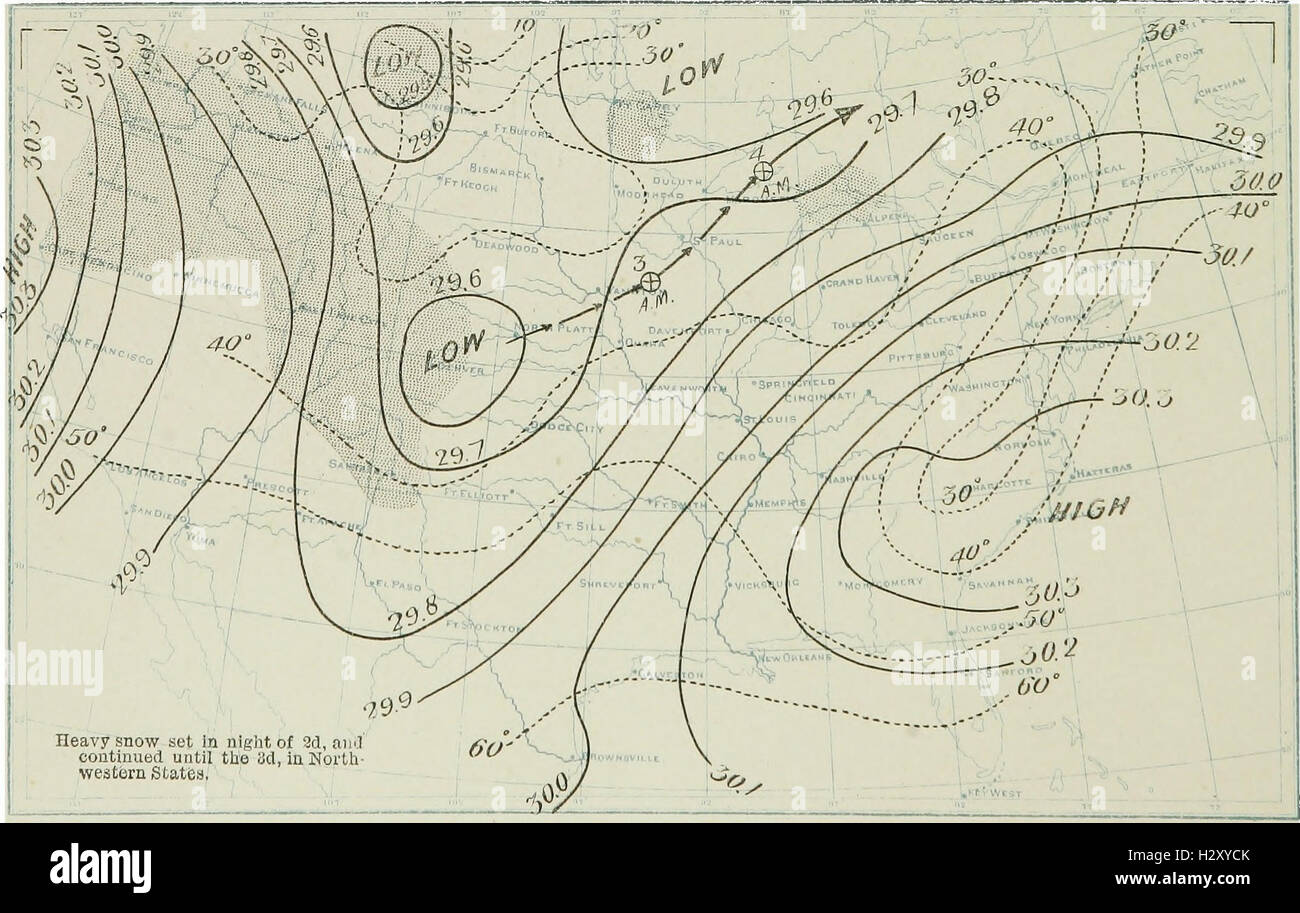 30.2
30.1
30.0
29.9
30°
29.8
29.7
29.6
LOW
29.6
29.6
10
20°
30°
LOW
29.6
29.7
29.8
30°
40°
30°
FATHER POINT
CHATHAM
QUEBEC
29.9
HALIFAX
EASTPORT
MONTREAL
30.0
40°
30.1
30.3
HELENA
FT. BUFORD
BISMARCK
FT KEOGH
MOORHEAD
DULUTH
4
A.M.
ALPENA
SAUGEEN
MT. WASHINGTON
OSWEGO
BUFFALO
BOSTON
HIGH
30.3
CAPE MENDOCINO
WINNEMUCCA
DEADWOOD
ST. PAUL
3
A.M.
YANKTON
GRAND HAVEN
29.6
LOW
NORTH PLATTE
OMAHA
DAVENPORT
CHICAGO
TOLEDO
CLEVELAND
NEW YORK
PITTSBURG
PHILADELPHIA
30.2
SALT LAKE CITY
DENVER
SAN FRANCISCO
40°
LEAVENWORTH
SPRINGFIELD
CINCINNATI
WASHINGTON
30.3
30.2
30.1
30.0
50°
DODGE CITY
ST. LOUIS
CAIRO
NORFOLK
29.7
LOS ANGELOS
PRESCOTT
SANTA FE
FT. ELLIOTT
FT. SMITH
MEMPHIS
NASHVILLE
30°
CHARLOTTE
HATTERAS
HIGH
SAN DIEGO
YUMA
FT. APACHE
FT. SILL
40°
29.9
EL PASO
SHREVEPORT
VICKSBURG
MONTGOMERY
SAVANNAH
30.3
50°
29.8
FT. STOCKTON
JACKSONVILLE
NEW ORLEANS
30.2
SANFORD
60°
GALVESTON
29.9
60°
BROWNSVILLE
30.0
30.1
KEY WEST
Heavy snow set in night of 2d, and
continued until the 3d, in North-
western States.
alamy
alamy
Image ID: H2XYCK
www.alamy.com